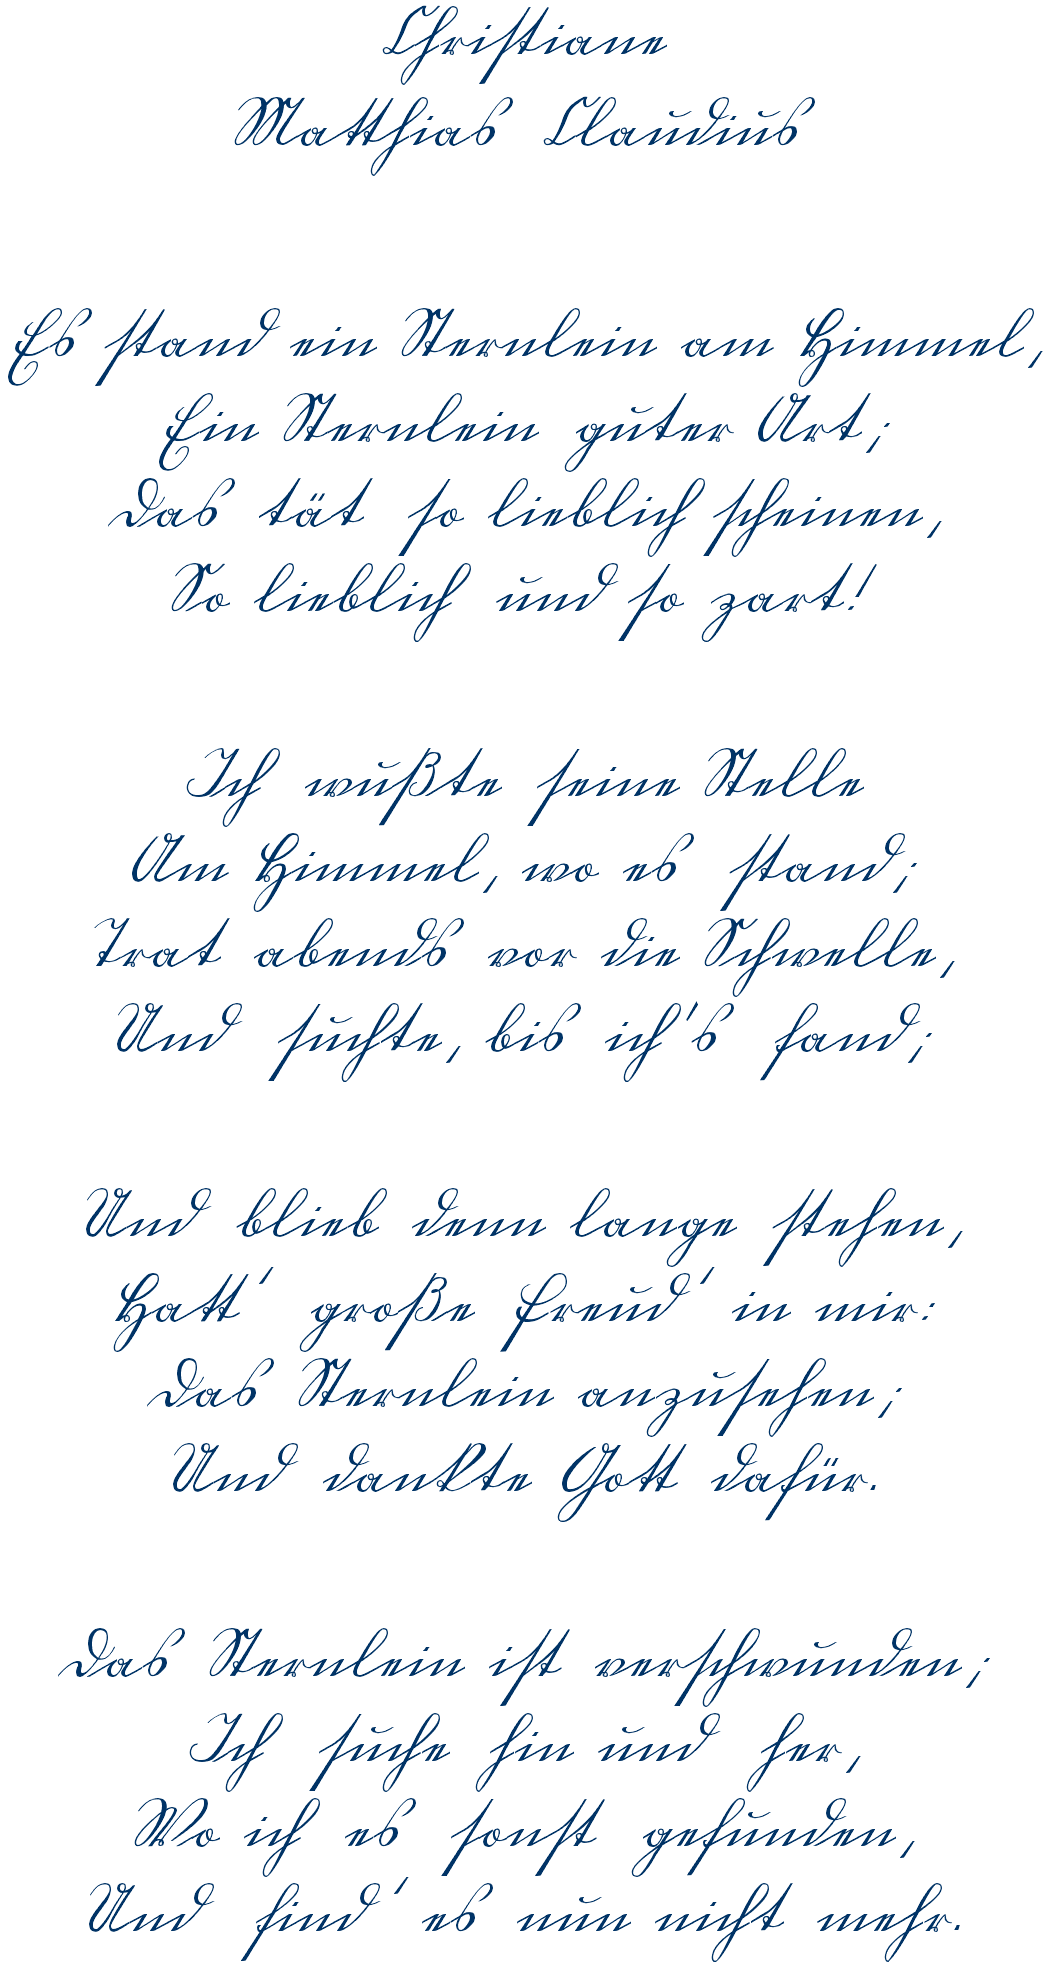 Christiane
Matthias Claudius
Es stand ein Sternlein am Himmel,
Ein Sternlein guter Art;
Das tät so lieblich scheinen,
So lieblich und so zart!
Ich wußte seine Stelle
Am Himmel, wo es stand;
Trat abends vor die Schwelle,
Und suchte, bis ich's fand;
Und blieb denn lange stehen,
Hatt' große Freud' in mir:
Das Sternlein anzusehen;
Und dankte Gott dafür.
Das Sternlein ist verschwunden;
Ich suche hin und her,
Wo ich es sonst gefunden,
Und find' es nun nicht mehr.